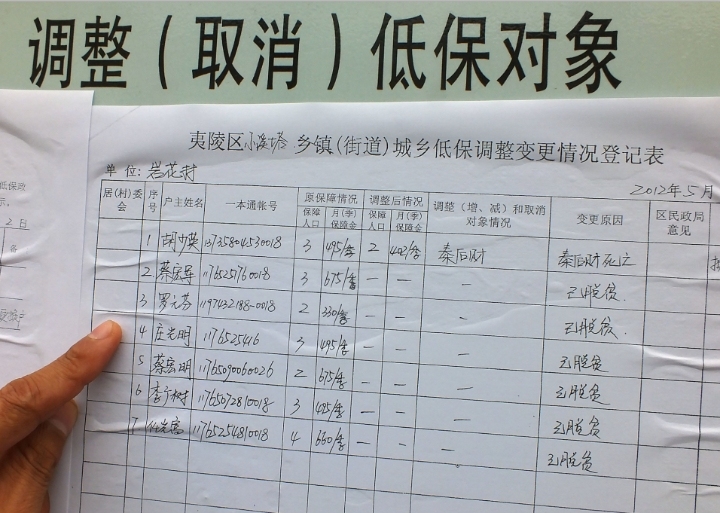 调整（取消）低保对象
夷陵区小溪塔乡镇(街道)城乡低保调整变更情况登记表
单位:岩花村
2012年5月
居(村)委会 序号 户主姓名 一本通帐号 原保障情况 调整后情况 调整（增、减）和取消对象情况 变更原因 区民政局意见
保障人口 月(季)保障金 保障人口 月(季)保障金
1 3 495/季 2 402/季 秦后财 秦后财死亡
2 1176525760018 3 675/季 — — — 已脱贫.
3 罗元芬 2 330/季 — — — 已脱贫.
4 庄光明 1176525416 3 495/季 — — — 已脱贫
5 蔡宏明 11765090060026 2 675/季 — — — 已脱贫
6 11765072810018 3 495/季 — — — 已脱贫
7 11765254810018 4 660/季 — — — 已脱贫
低保政
2 日